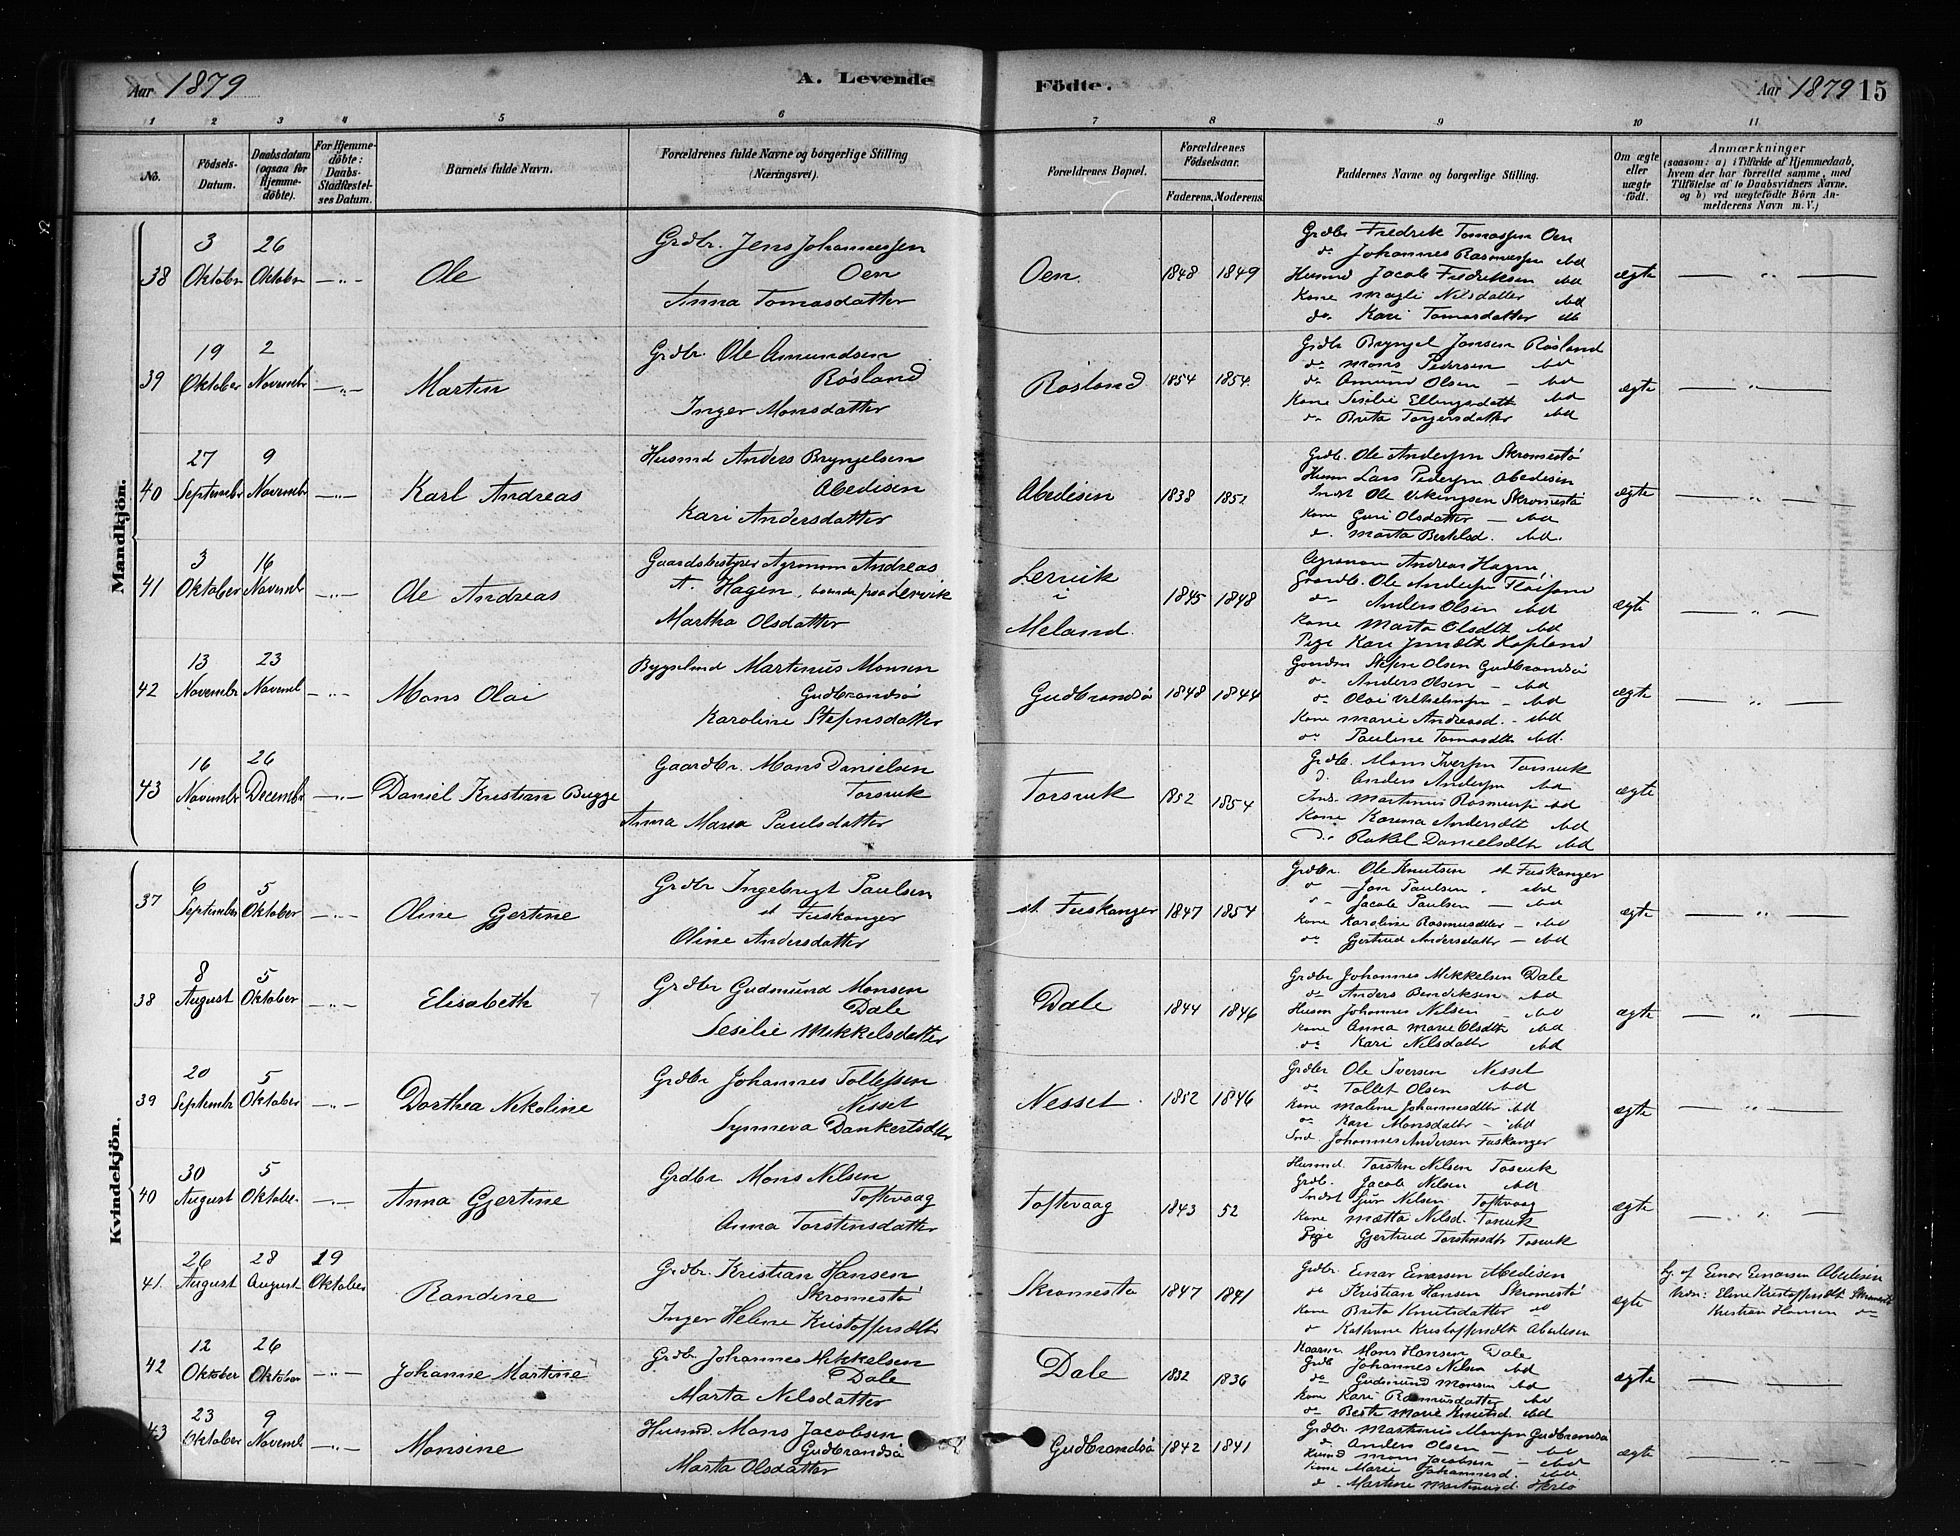 Aar 1879
A. Levende
Födte.
Aar 1879 15
1 2 3 4 5 6 7 8 9 10 11
No.
Födsels-Datum.
Daabsdatum (ogsaa for Hjemmedöbte).
For Hjemmedöbte: Daabs-Stadfæstelses Datum.
Barnets fulde Navn.
Forældrenes fulde Navne og borgerlige Stilling (Næringsvei).
Forældrenes Bopæl.
Forældrenes Födselsaar.
Faderens. Moderens.
Faddernes Navne og borgerlige Stilling.
Om ægte eller uægte födt.
Anmærkninger
(saasom: a) i Tilfælde af Hjemmedaab, hvem der har forrettet samme, med Tilföielse af to Daabsvidners Navne. og b) ved uægtefödte Börn Anmelderens Navn m. V.)
Mandkjön.
38
3 Oktober
26 Oktober
Ole
Grdbr. Jens Johannessen
Oen
Anna Tomasdatter
Oen.
1848 1849
Grdbr Fredrik Tomassen Oen
do Johannes Rasmussen ibd
Husmd Jacob Fredriksen ibd
Kone Magli Nilsdatter ibd
do Kari Tomasdatter ib
ægte
39
19 Oktober
2 Novembr
Martin
Grdbr. Ole Amundsen
Røsland
Inger Monsdatter
Røsland
1854 1854
Grdbr Bryngel Jonsen Røsland
do Mons Pedersen ibd
do Amund Olsen - ibd
Kone Sesilie Ellingsdatt ibd
do Brita Torgersdatter ibd
ægte
40
27 Septembr
9 Novembr
Karl Andreas
Husmd Anders Bryngelsen
Abedisen
Kari Andersdatter
Abedisen
1838 1852
Grdb. Ole Anderssen Skromestø
Husm Lars Pederssen Abedisen
Indst Ole Vikingsen Skromestø
Kone Guri Olsdatter - ibd
d. Marta Bertelsd. ibd.
ægte
41
3 Oktober
16 Novembr
Ole Andreas
Gaardsbestyrer Agronom Andreas
A. Hagen, boende paa Lervik
Martha Olsdatter
Lervik
i
Meland.
1845 1848
Agronom Andreas Hagen,
Grandb. Ole Anderssen
do Anders Olsen ibd
Kone Marta Olsdtt ibd
Pige Kari Hopland
ægte
42
13 Novembr
23 Novemb
Mons Olai
Bygselmd Martinus Monsen
Gudbrandsø
Karoline Stefensdatter
Gudbrandsø
1848 1844
Stefen Olsen Gudbrandsø
do Anders Olsen - ibd
do Olai Vilhelmsen - ibd
Kone Marie Andreasd. - ibd
do Pauline Tomasdtr ibd.
ægte
43
16 Novembr
26 Decembr
Daniel Kristian Bugge
Gaardbr. Mons Danielsen
Torsvik
Anna Maria Paulsdatter
Torsvik
1852 1854
Grdb. Mons Iverssen Torsvik
d. Anders Anderssen ibd
Ind. Martinus Rasmussen ibd
Kone Karina Andersdtt ibd
do Rakel Danielsdtr ibd
ægte
Kvindekjön.
37
6 September
5 Oktober
Oline Gjertine
Grdbr Ingebrigt Paulsen
st Fuskanger
Oline Andersdatter
st. Fuskanger
1847 1854
Grdbr. Ole Knutsen st Fuskanger
do Jon Paulsen. ibd
do Jacob Paulsen - ibd
Kone Karoline Rasmusdtter - ibd
do Gjertrud Andersdatter - ibd
ægte
38
8 August
5 Oktober
Elisabeth
Grdbr Gudmund Monsen
Dale
Sesilie Mikkelsdatter
Dale
1844 1846
Grdbr Johannes Mikkelsen Dale
do Anders Bendiksen ibd
Husm Johannes Nilsen - ibd
Kone Anna Marie Olsdtr ibd
do Kari Nilsdatter ibd
ægte
39
20 Septembr
5 Oktober
Dorthea Nikoline
Grdbr Johannes Tollefsen
Nesset
Synneva Dankertsdtter
Nesset.
1852 1846
Grdbr Ole Iversen Nesset
do Tollef Olsen ibd
Kone Malene Johannesdtr ibd
do Kari Monsdatter - ibd
Ind Johannes Andersen Fuskanger
ægte
40
30 August
5 Oktobe.
Anna Gjertine
Grdbr. Mons Nilsen
Toftevaag
Anna Torstensdatter
Toftevaag
1843 52
Husmd. Torsten Nilsen Tosvik
Grdb. Jacob Nilsen ibd
Indst Gjur Nilsen Toftvaag
Kone Mætta Nilsd. Tosvik
Pige Gjertrud Torstensdtr Tosvik
ægte
41.
26 August
28 August
19 Oktober
Randine
Grdbr. Kristian Hansen
Skromestø
Inger Helene Kristoffersdtr
Skromestø
1847 1841
Grdbr. Einar Einarsen Abedisen
do Kristian Hansen Skromestø
Kone Brita Knutsdatter ib
do Kathrine Kristoffersdtt Abedisen
ægte
af Einar Einarsen Abedisen
Vidn: Eline Kristoffersdtt Skromestø
Kristian Hansen do
42
12 Oktober
26 Oktober
Johanne Martine
Grdb. Johannes Mikkelsen
Dale
Marta Nilsdatter
Dale
1832 1836
Mons Hansen Dale
Grdb Johannes Nilsen ibd
do Gudmund Monsen ibd
Kone Kari Rasmusdatter ibd
do Berte Marie Knutsd ibd
ægte
43
23 Oktober
9 Novemb
Monsine
Husmd. Mons Jacobsen
Gudbrandsø
Marta Olsdatter
Gudbrandsø
1842 1841
Grdbr. Martinus Monsen Gudbrandsø
do Anders Olsen - ibd
Husmd Mons Jacobsen - ibd
Kone Marie Johannesd. ibd
d. Martine Martinusd. Herlø
ægte